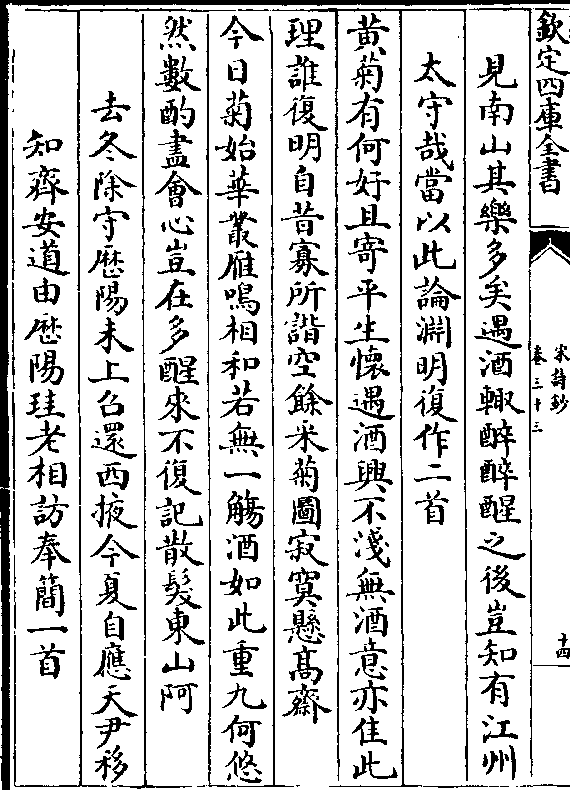 欽定四庫全書
宋詩鈔
卷三十三
十四
見南山其樂多矣遇酒輙醉醉醒之後豈知有江州
太守哉當以此論淵明復作二首
黄菊有何好且寄平生懷遇酒興不淺無酒意亦佳此
理誰復明自昔寡所諧空餘采菊圖寂寞懸髙齋
今日菊始華叢雁鳴相和若無一觴酒如此重九何悠
然數酌盡會心豈在多醒來不復記散髮東山阿
去冬除守厯陽未上召還西掖今夏自應天尹移
知齊安道由厯陽珪老相訪奉簡一首